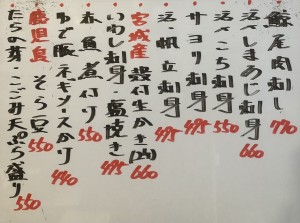 鮫尾肉刺し 770
活〆しめじ刺身 660
活さざえ刺身 550
サヨリ刺身 495
活帆立刺身 495
宮城産 殻付生かき(2ヶ) 660
いわし刺身・塩焼き 495
赤魚煮付け 550
ゆで豚ネギソースかけ 440
鹿児島 そら豆 550
たらの芽・こごみ天ぷら盛り 550